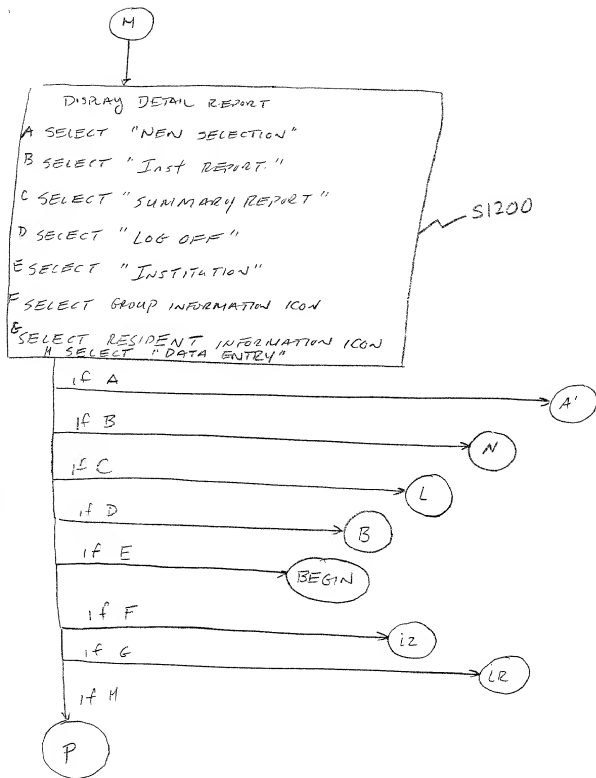 M
DISPLAY DETAIL REPORT
A SELECT "NEW SELECTION"
B SELECT "Inst REPORT."
C SELECT "SUMMARY REPORT"
D SELECT "LOG OFF"
E SELECT "INSTITUTION"
F SELECT GROUP INFORMATION ICON
G SELECT RESIDENT INFORMATION ICON
H SELECT "DATA ENTRY"
S1200
if A
A'
If B
N
if C
L
if D
B
if E
BEGIN
if F
i2
if G
LR
if H
P